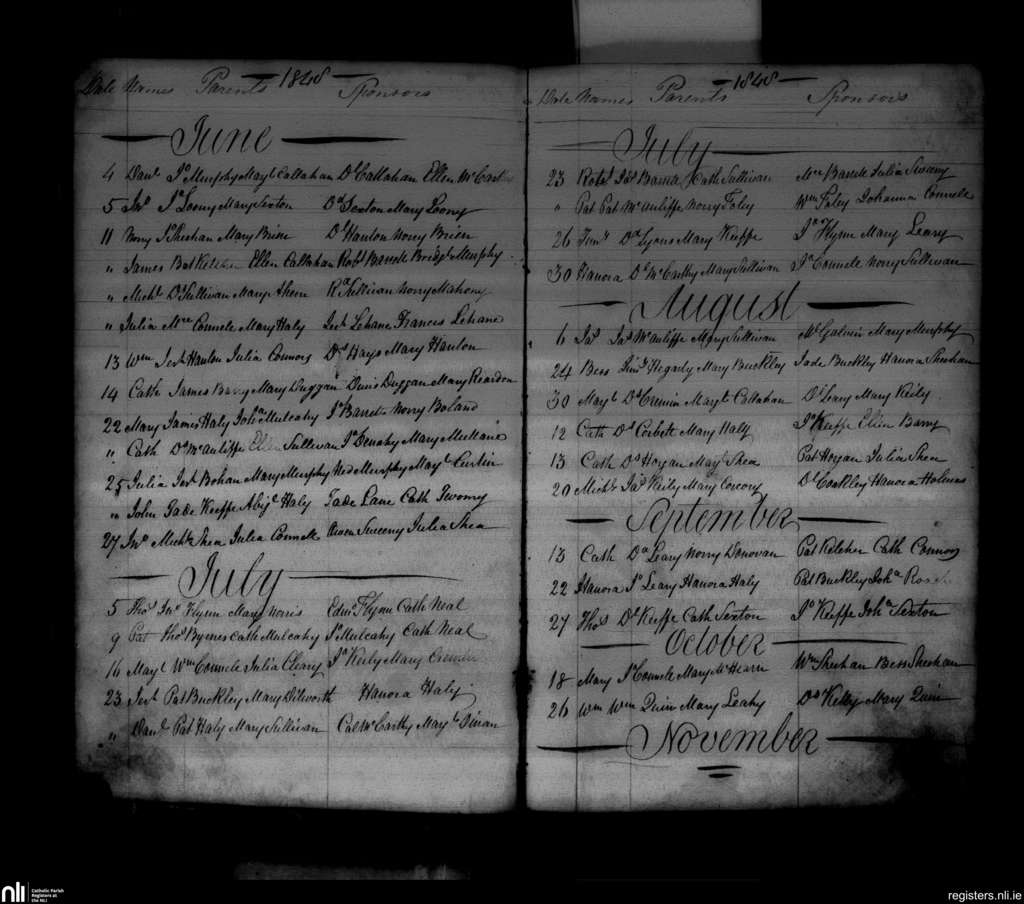 1848
Date Names Parents Sponsors
June
4 Danl Jn Murphy Mayt Callahan Dl Callahan Ellen McCarthy
5 Jno Jn Loony Mary Sexton Dd Sexton Mary Loony
11 Norry Jn Sheehan Mary Brien Dl Hanlon Norry Brien
" James Bat Kelcher Ellen Callahan Robt Barrett Bridgt Murphy
" Michl Dl Sullivan Mary Ahern Rd Sullivan Norry Mahony
" Julia Mce Connele Mary Haly Jerh Lehane Frances Lehane
13 Wm Jerh Hanlon Julia Connors Dd Hays Mary Hanlon
14 Cathe James Barry Mary Duggan Denis Duggan Mary Reardon
22 Mary James Haly Joha Mulcahy Jn Barrett Norry Boland
" Cath Ds McAuliffe Ellen Sullivan Jn Denahy Mary
25 Julia Jerh Bohan Mary Murphy Ned Murphy Mayt Curtin
" John Gade Keeffe Abig Haly Tade Lane Cath Twomy
27 Jno Michl Shea Julia Connele Owen Sweeny Julia Shea
July
5 Thos Jno Flynn Mary Norris Edmd Flynn Cath Neal
9 Pat Thos Byrnes Cath Mulcahy Jn Mulcahy Cath Neal
16 Mayt Wm Connele Julia Cleary Jn Keily Mary
23 Jerh Pat Buckley Mary Dilworth Hanora Haly
" Danl Pat Haly Mary Sullivan Cal McCarthy Mayt Dinan
1848
Date Names Parents Sponsors
July
23 Robt Jas Cath Sullivan Mce Barrett Julia Sweeny
" Pat Pat McAuliffe Norry Foley Wm Foley Johanna Connele
26 Timy Dd Lyons Mary Keeffe Jn Flynn Mary Leary
30 Hanora Dl McCarthy Mary Sullivan Jn Connele Norry Sullivan
August
6 Jas Jas McAuliffe Mary Sullivan Ml Galvin Mary Murphy
24 Bess Timy Hegarty Mary Buckley Jade Buckley Hanora Sheehan
30 Mayt Dd Cremin Mayt Callahan Dl Leary Mary Keily
12 Cath Ds Corbett Mary Haly Jn Keeffe Ellen Barry
13 Cath Ds Hogan Mayt Shea Pat Hogan Julia Shea
20 Michl Jas Keily Mary Corcory Dl Coakley Hanora Holmes
September
13 Cath Dd Leary Norry Donovan Pat Kelcher Cath Connors
22 Hanora Jn Leary Hanora Haly Pat Buckley Joha
27 Thos Dl Keeffe Cath Sexton Jn Keeffe Joha Sexton
October
18 Mary Jn Connele Mary McHearn Wm Sheehan Bess Sheehan
26 Wm Wm Quin Mary Leahy Ds Kelly Mary Quin
November
nli
Catholic Parish
Registers at
the NLI
registers.nli.ie